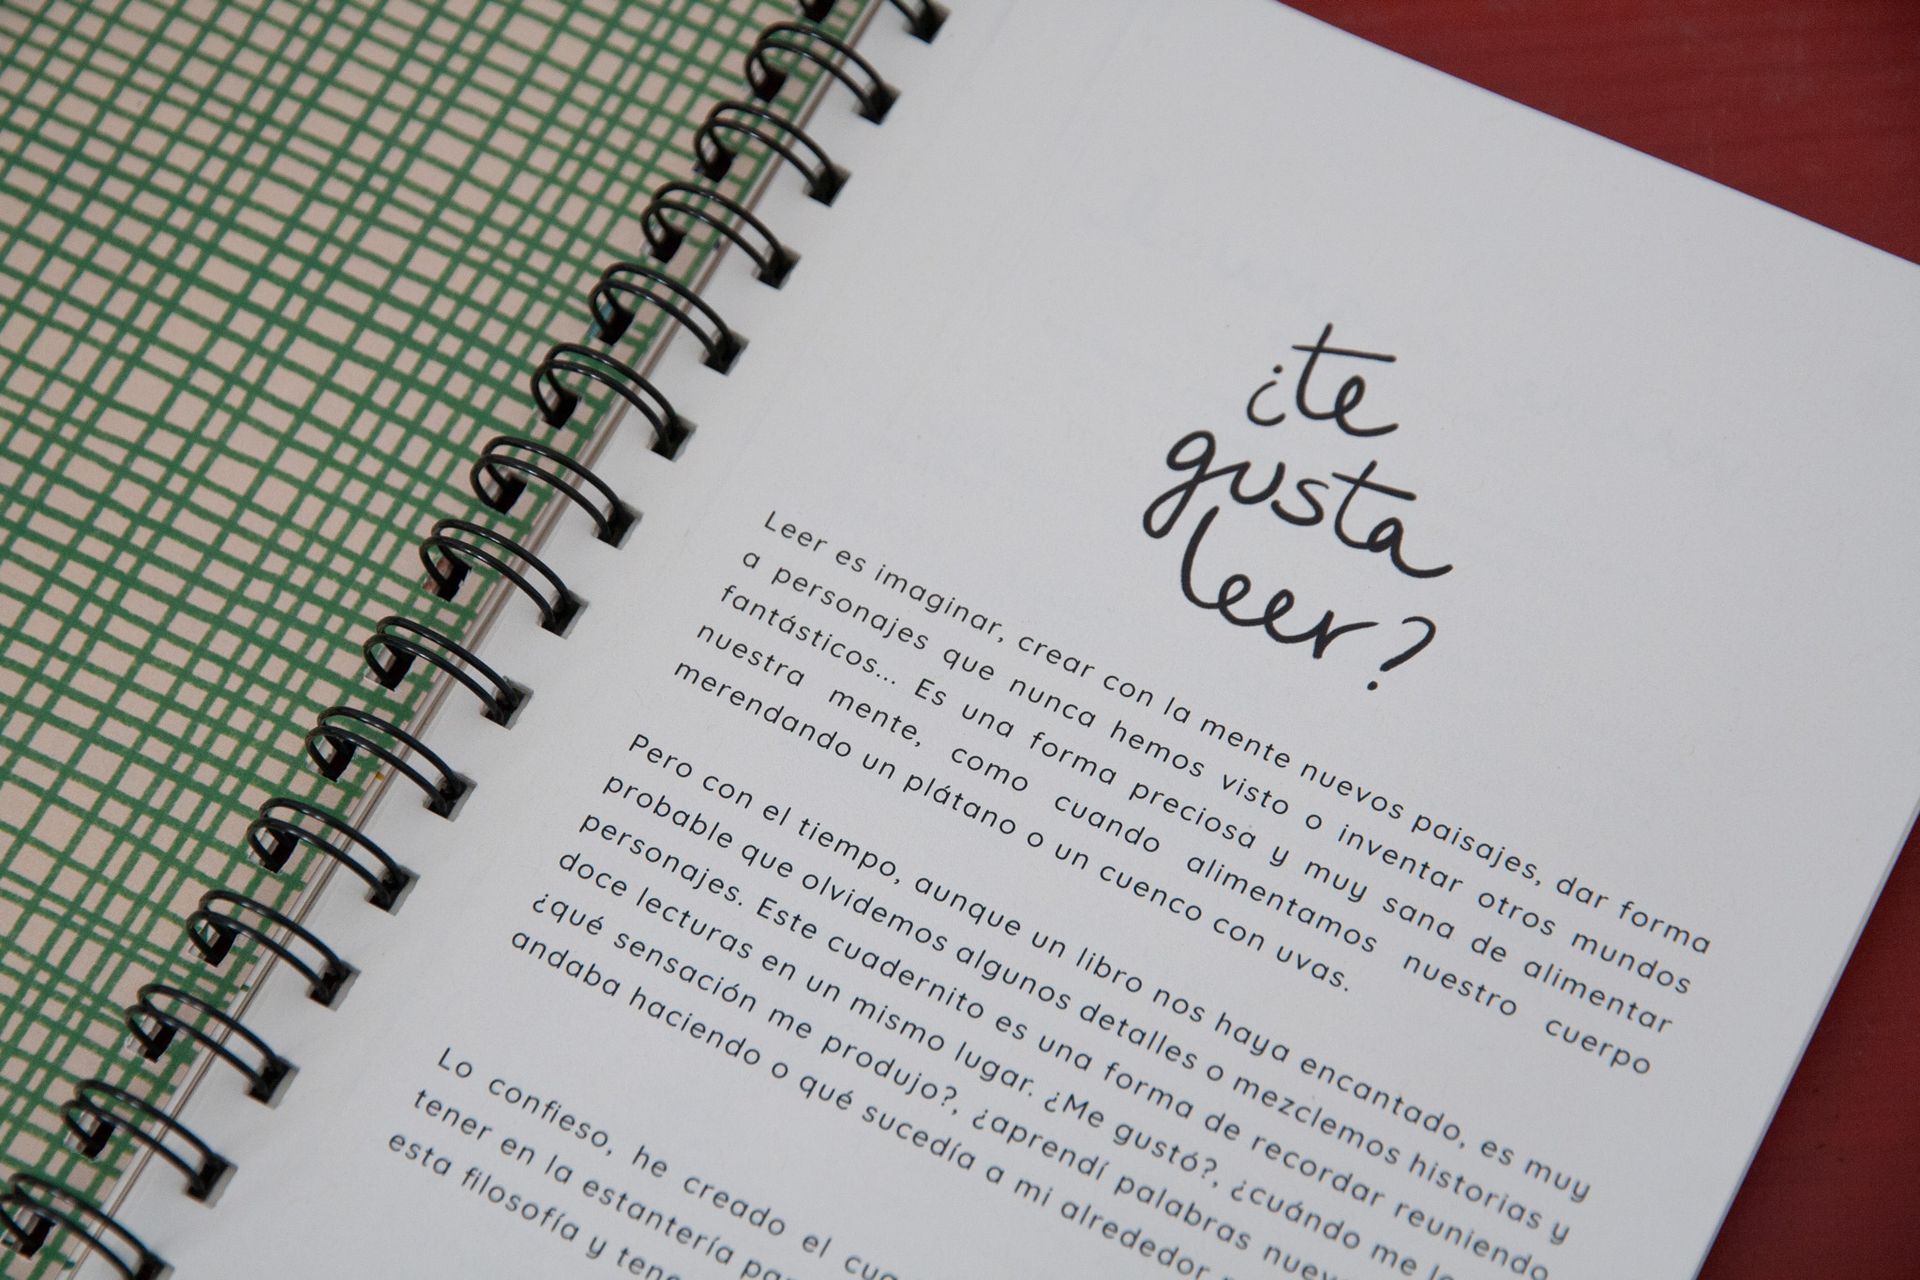 ¿te
gusta
leer?
Leer es imaginar, crear con la mente nuevos paisajes, dar forma
a personajes que nunca hemos visto o inventar otros mundos
fantásticos... Es una forma preciosa y muy sana de alimentar
nuestra mente, como cuando alimentamos nuestro cuerpo
merendando un plátano o un cuenco con uvas.
Pero con el tiempo, aunque un libro nos haya encantado, es muy
probable que olvidemos algunos detalles o mezclemos historias y
personajes. Este cuadernito es una forma de recordar reuniendo
doce lecturas en un mismo lugar. ¿Me gustó?, ¿cuándo me
¿qué sensación me produjo?, ¿aprendí palabras
andaba haciendo o qué sucedía a mi alrededor
Lo confieso, he creado el
tener en la estantería
esta filosofía y